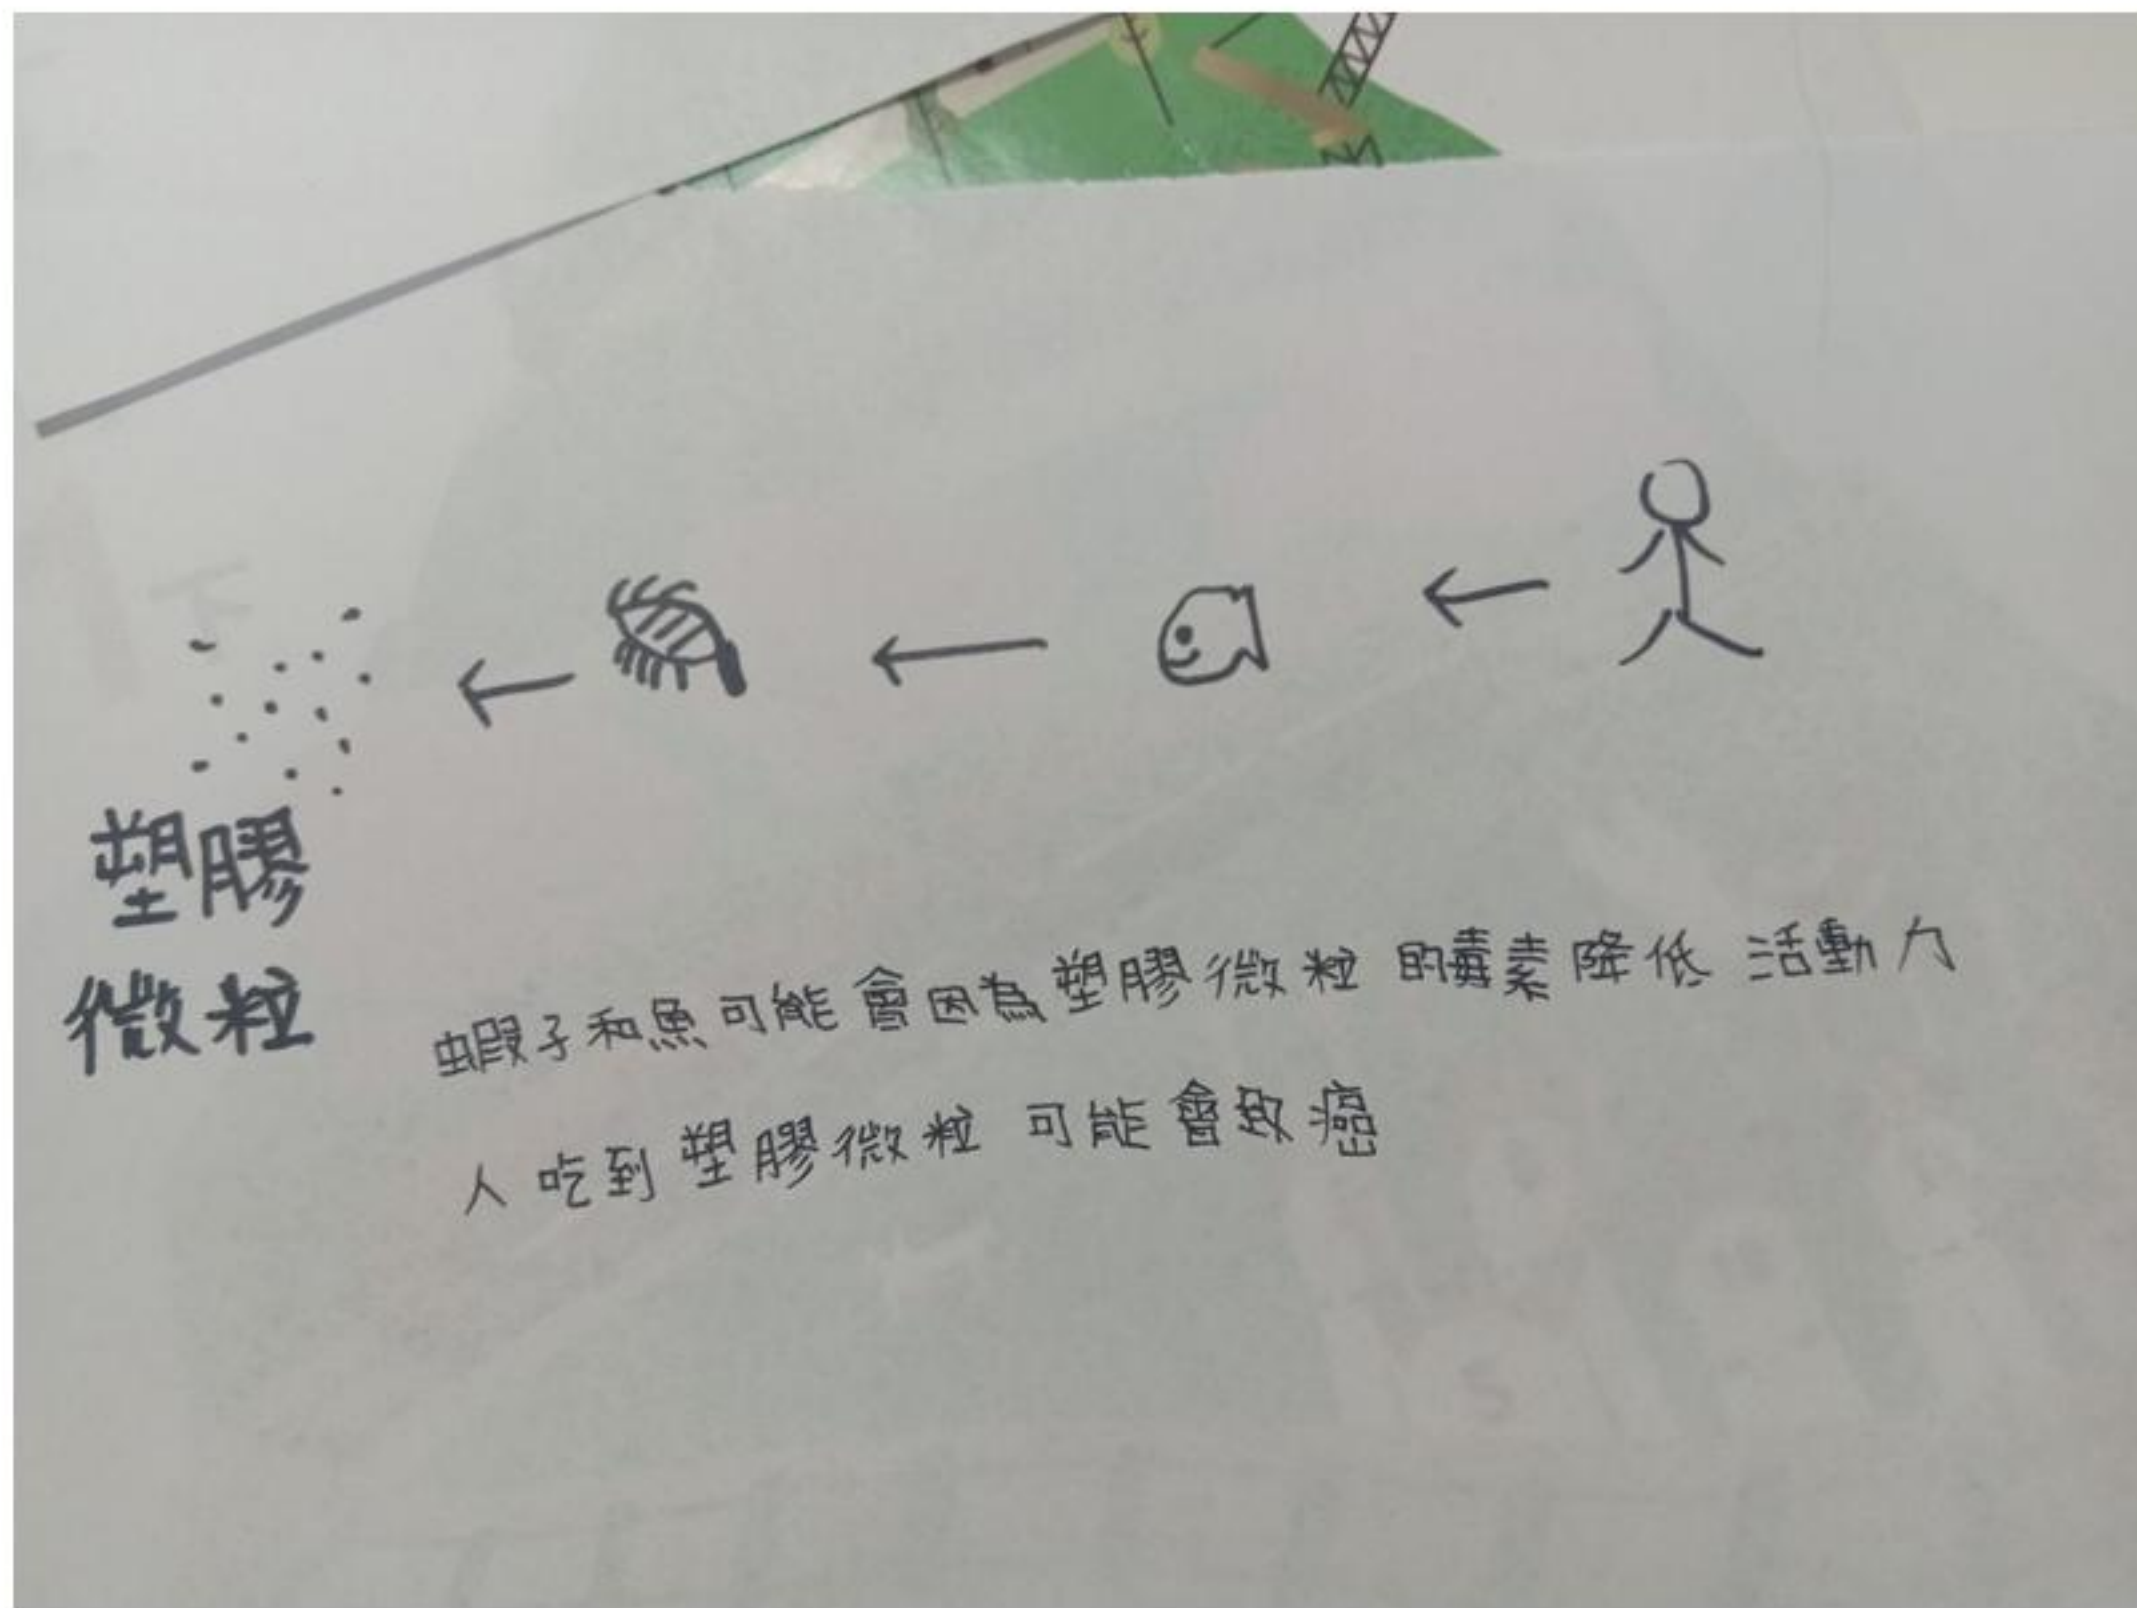 塑膠
微粒
蝦子和魚可能會因為塑膠微粒的毒素降低活動力
人吃到塑膠微粒可能會致癌